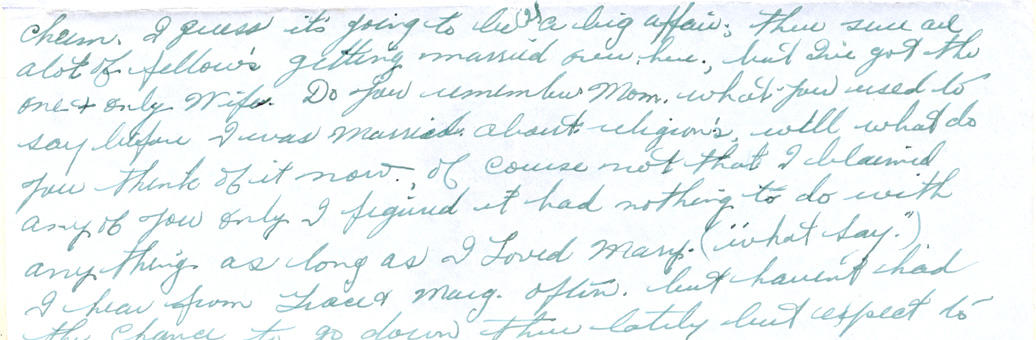 chum. I guess it's going to be a big affair; there sure are
alot of fellow's getting married over here, but I've got the
one & only Wife. Do you remember Mom. what you used to
say before I was Married. about religion's, well what do
you think of it now., of course not that I blamed
any of you only I figured it had nothing to do with
anything as long as I Loved Mary. ("what say.")
I hear from Grace & Marg. often. but haven't had
the chance to go down there lately but expect to